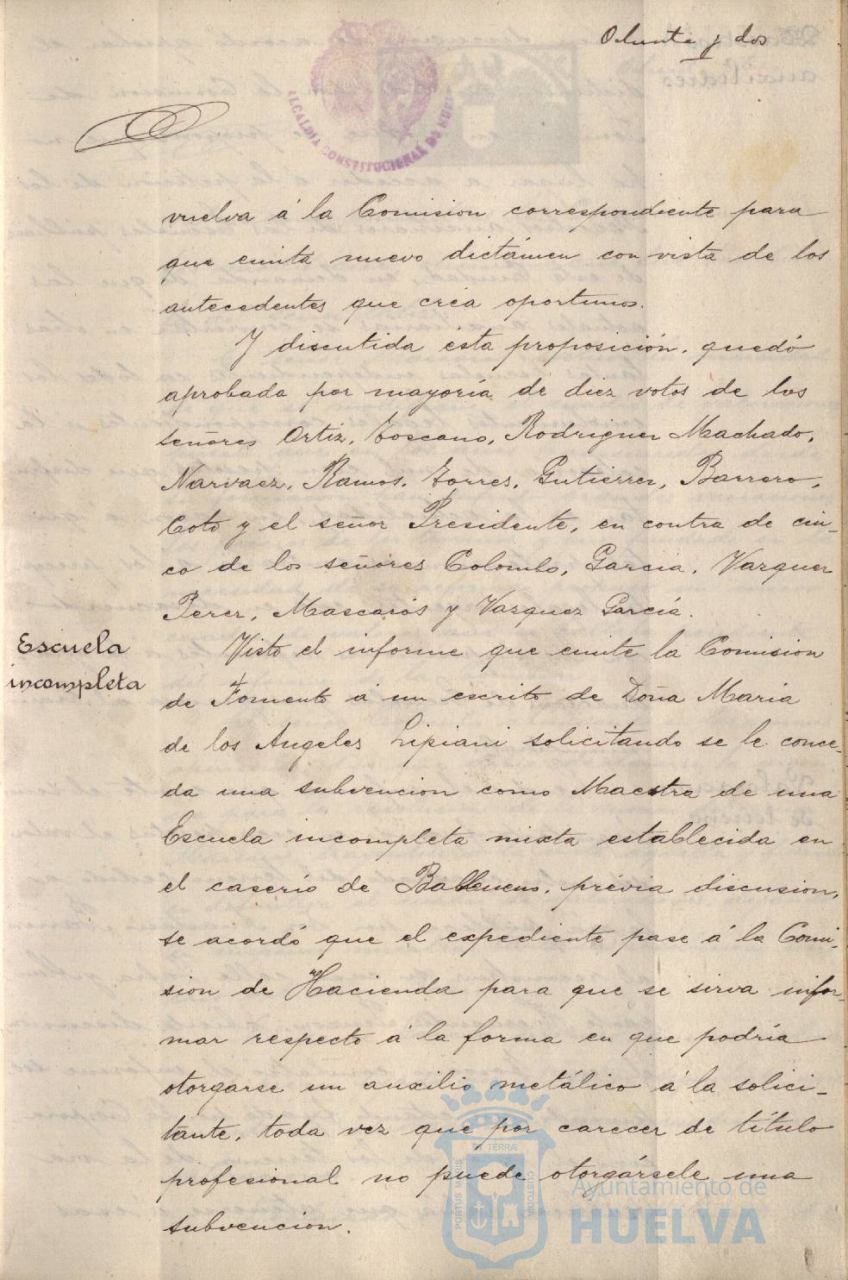 Ochenta y dos
ALCALDIA CONSTITUCIONAL DE
vuelva á la Comision correspondiente para
que emita nuevo dictámen con vista de los
antecedentes que créa oportunos.
Y discutida ésta proposición, quedó
aprobada por mayoría de diez votos de los
señores Ortiz, Toscano, Rodriguez Machado,
Narvaez, Ramos, Torres, Gutierrez, Barrero,
Coto y el señor Presidente, en contra de cin-
co de los señores Colombo, Garcia, Vazquez
Perez, Mascarós y Vazquez García.
Escuela
incompleta
Visto el informe que emite la Comision
de Fomento á un escrito de Doña Maria
de los Angeles Lipiani solicitando se le conce-
da una subvencion como Maestra de una
Escuela incompleta mixta establecida en
el caserío de, prévia discusion,
se acordó que el expediente pase á la Comi-
sion de Hacienda para que se sirva infor-
mar respecto á la forma en que podría
otorgarse un auxilio metálico á la solici-
tante, toda vez que por carecer de título
profesional no puede otorgársele una
subvencion.
PORTUS MARIS
ET TERRAE
CUSTODIA
Ayuntamiento de
HUELVA